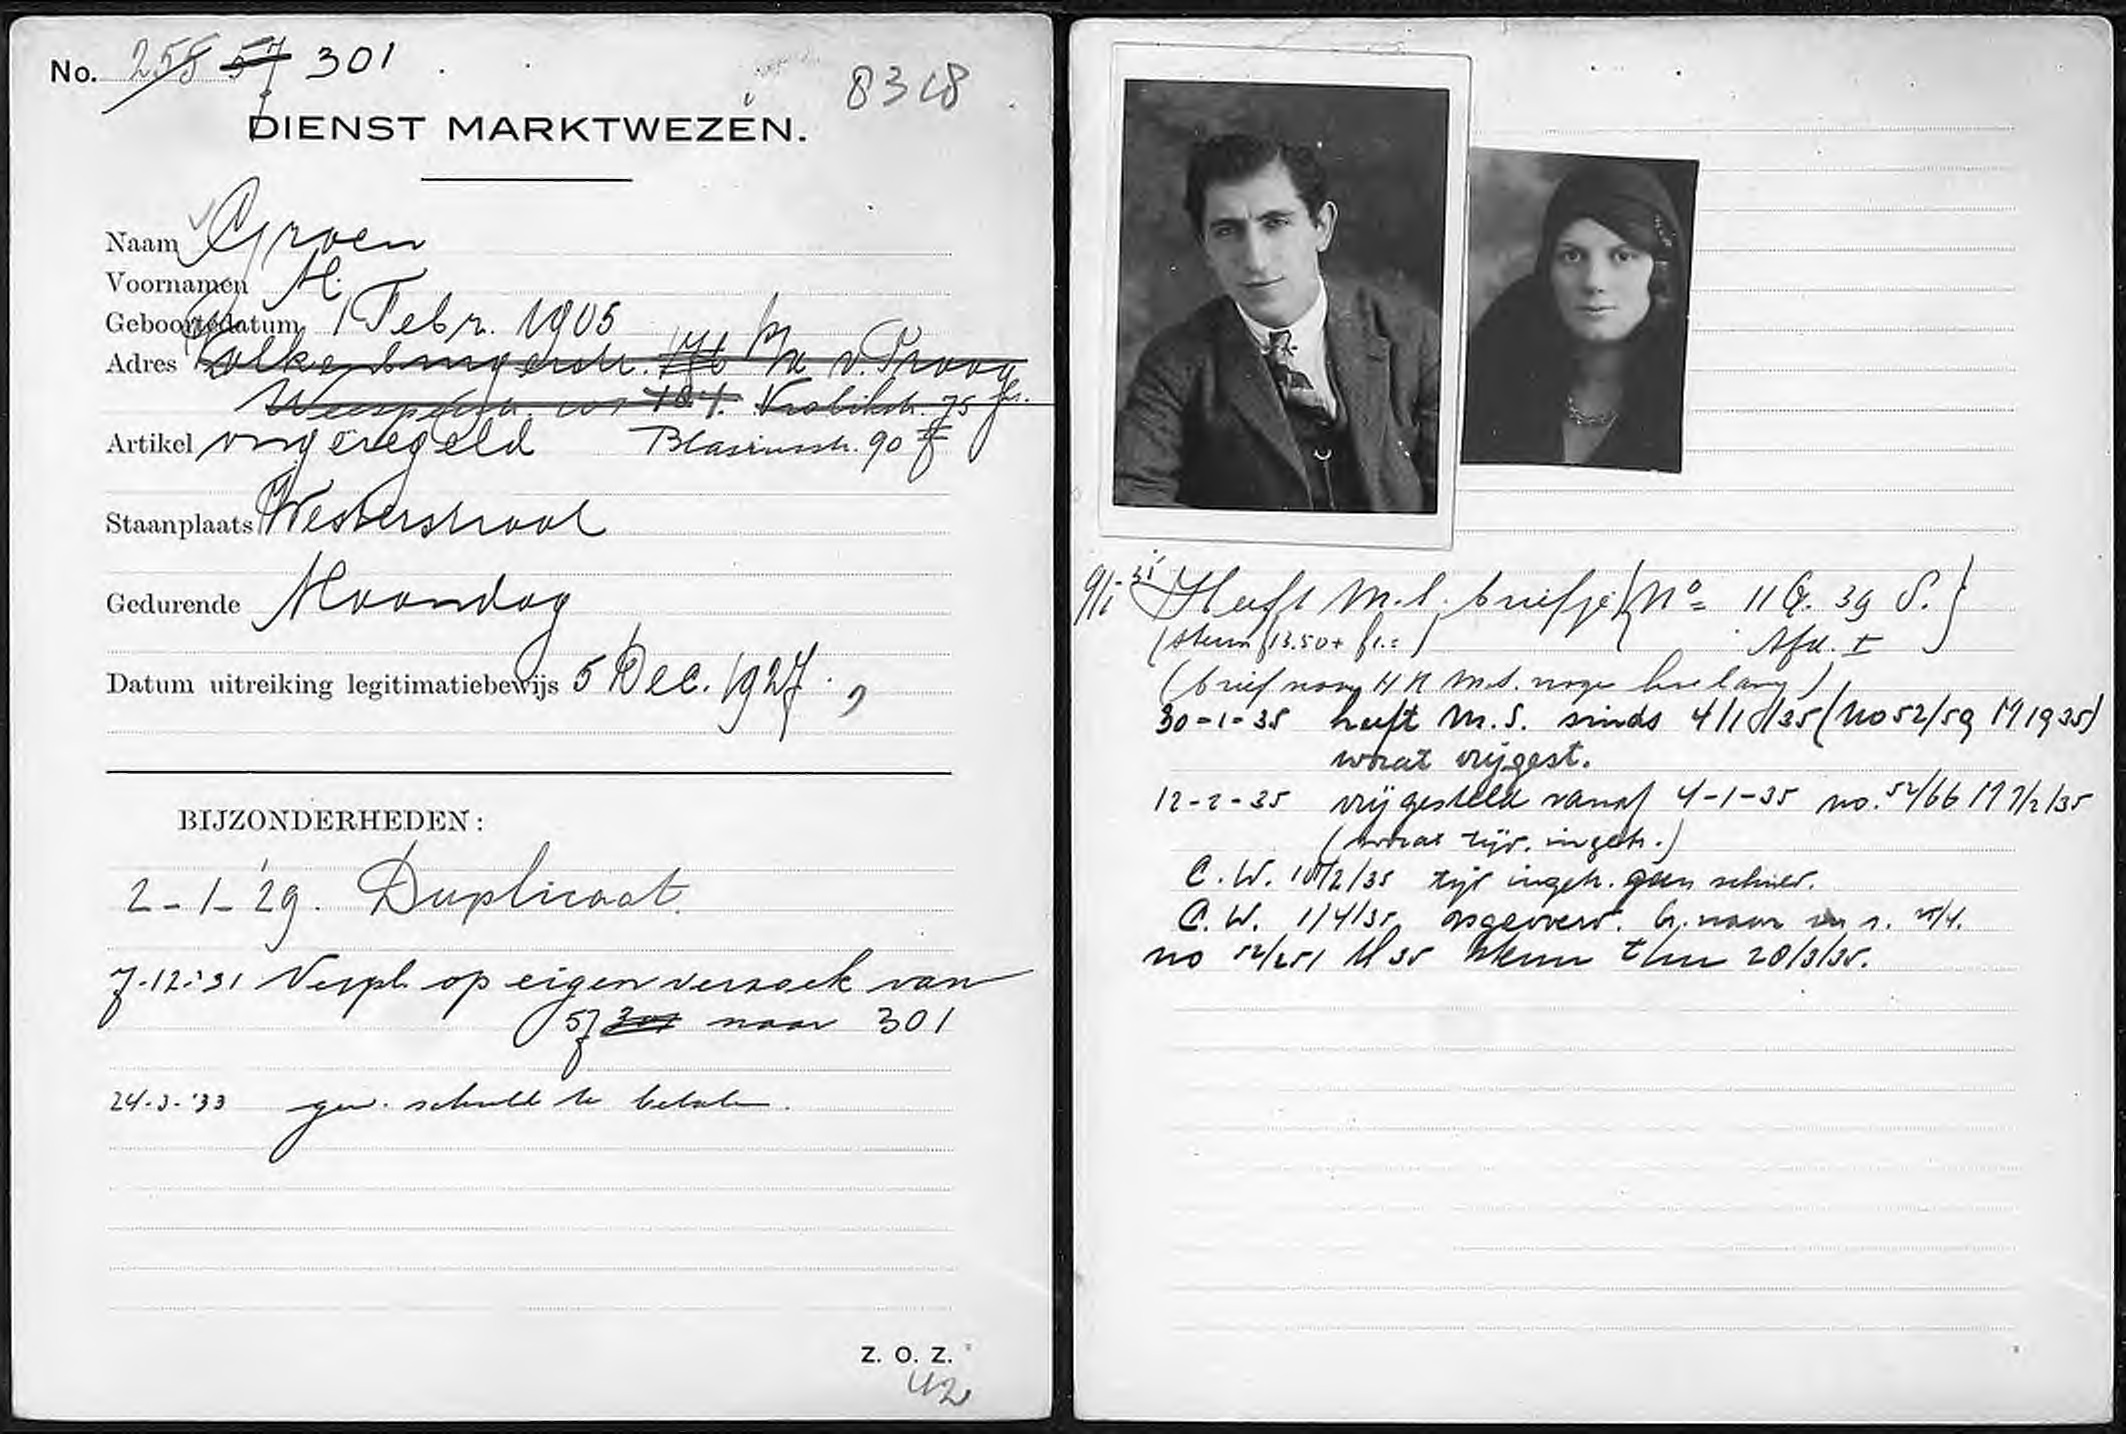 No. 258 57 301
8318
DIENST MARKTWEZEN.
Naam Groen
Voornamen M.
Geboortedatum 1 Febr. 1905
Adres Valkenburgerstr. M. v. Praag
Weesperstr. 104. 75
Artikel ongeregeld Blasiusstr. 90
Staanplaats Westerstraat
Gedurende Maandag
Datum uitreiking legitimatiebewijs 5 Dec. 1927.
BIJZONDERHEDEN:
2-1-'29. Duplicaat.
7-12-'31 Verpl. op eigen verzoek van
57 301 naar 301
24-3-'33 gew. schuld te betalen.
Z. O. Z.
42
Heeft M.S. briefje {No= 11 G. 39 S.}
(steun f13.50+ Afd. I
(brief naar M.S. hoe lang)
30-1-35 heeft M.S. sinds 4/1/35 (No 52/59 M 1935)
wordt vrijgest.
12-2-35 vrijgesteld vanaf 4-1-35 no. 52/66 M 7/2/35
(wordt tijd. ingetr.)
C.W. /2/35 tijd ingetr. geen schuld.
C.W. 1/4/35 G. naar
no 52/251 M 35 steun t/m 20/3/35.